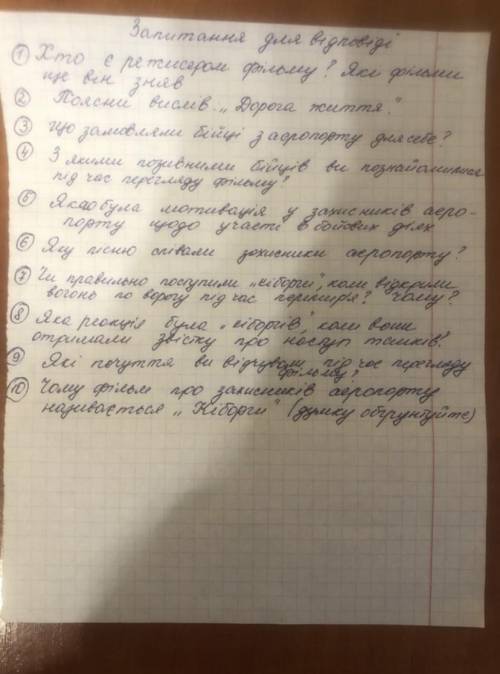 Запитання для відповіді
① Хто є режисером фільму? Які фільми
ще він зняв
② Поясни вислів „Дорога життя".
③ Що замовляли бійці з аеропорту для себе?
④ З якими позивними бійців ви познайомилися
під час перегляду фільму?
⑤ Якаобула мотивація у захисників аеро-
порту щодо участі в бойових діях
⑥ Яку пісню співали захисники аеропорту?
⑦ Чи правильно поступили „кіборги", коли відкрили
вогонь по ворогу під час перемир'я? Чому?
⑧ Яка реакція була „кіборгів", коли вони
отримали звістку про наступ танків.
⑨ Які почуття ви відчували під час перегляду
фільму?
⑩ Чому фільм про захисників аеропорту
називається „Кіборги" (думку обґрунтуйте)